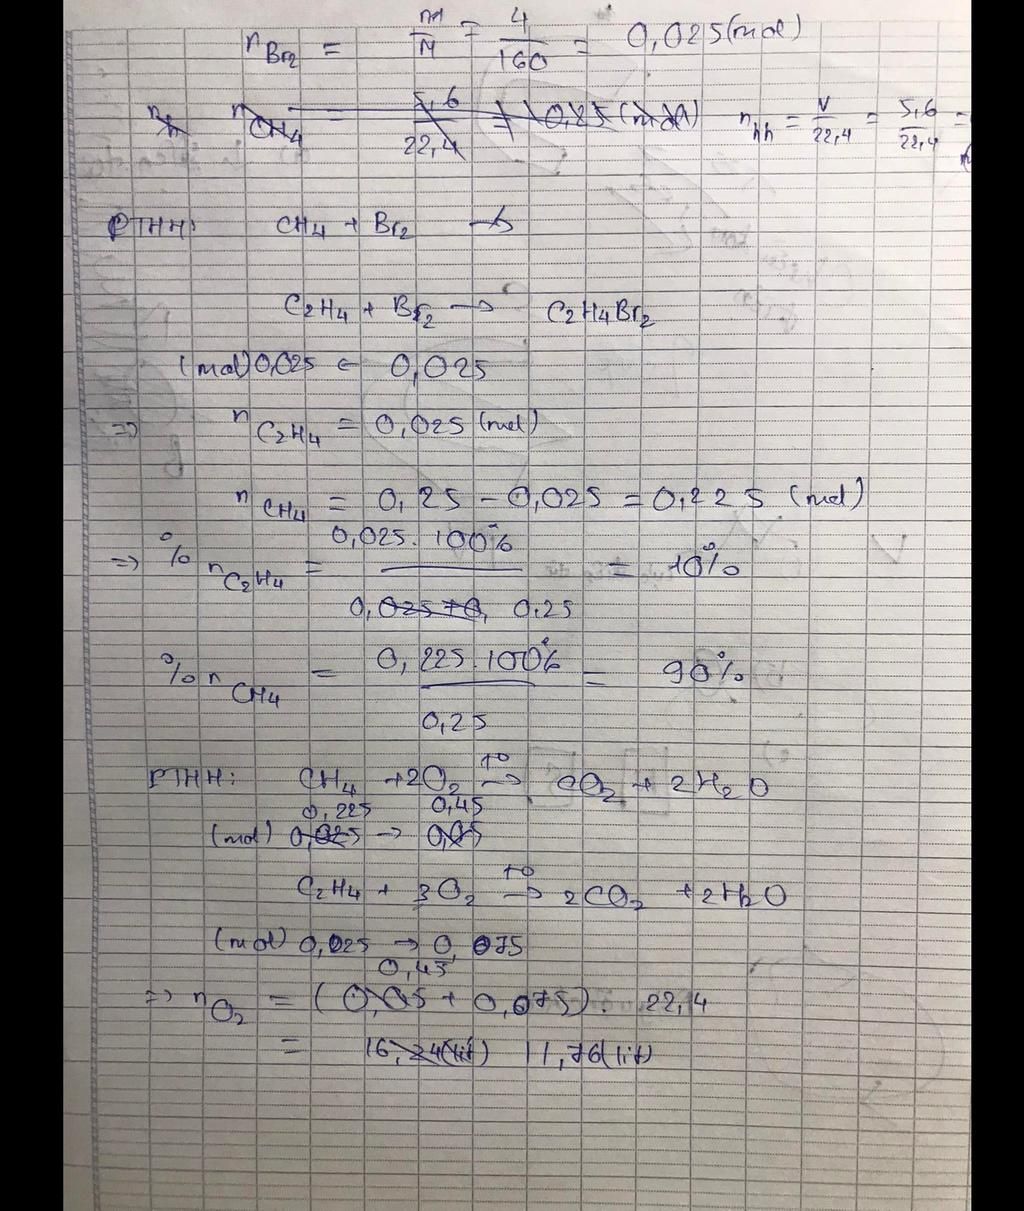 n Br2 = m/M = 4/160 = 0,025 (mol)
n CH4 = 5,6/22,4 = 0,25 (mol) n hh = V/22,4 = 5,6/22,4 =
PTHH: CH4 + Br2 →
C2H4 + Br2 → C2H4Br2
(mol) 0,025 ← 0,025
=> n C2H4 = 0,025 (mol)
n CH4 = 0,25 - 0,025 = 0,225 (mol)
=> % n C2H4 = 0,025.100% / 0,25 = 10%
% n CH4 = 0,225.100% / 0,25 = 90%
PTHH: CH4 + 2O2 →(to) CO2 + 2H2O
0,225 0,45
(mol) 0,025 → 0,05
C2H4 + 3O2 →(to) 2CO2 + 2H2O
(mol) 0,025 → 0,075
0,45
=> n O2 = (0,05 + 0,075). 22,4
= 16,24(lit) 11,76(lit)